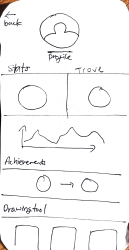 back
profile
Stats
Achievements
Drawing tool